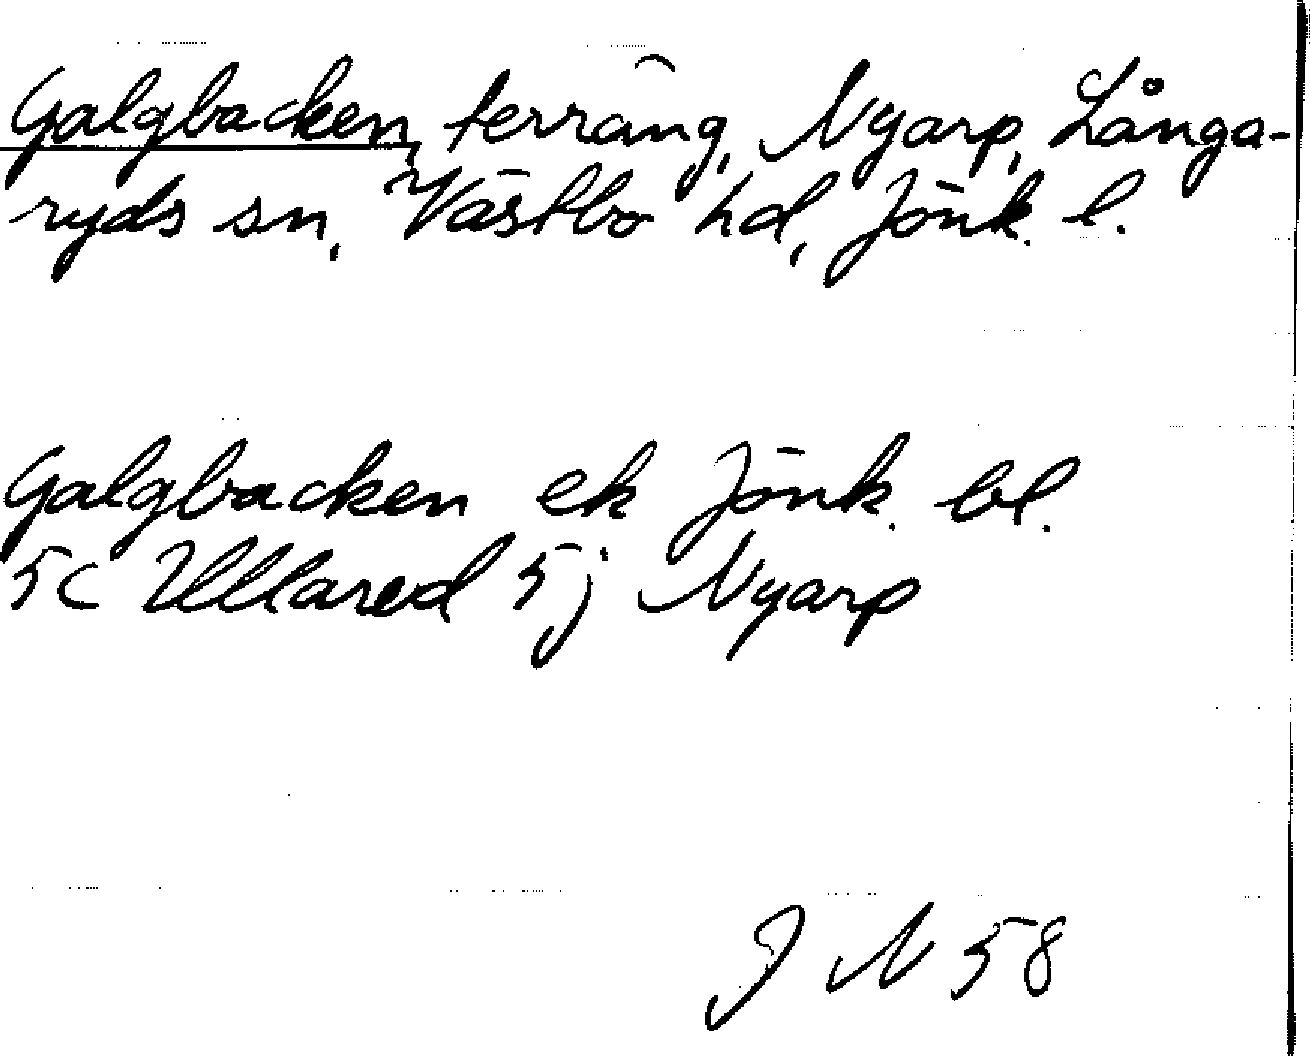 Galgbacken, terräng, Nyarp, Långa-
ryds sn, Västbo hd, Jönk. l.
Galgbacken ek Jönk. bl.
5c Ullared 5j Nyarp
J N 58